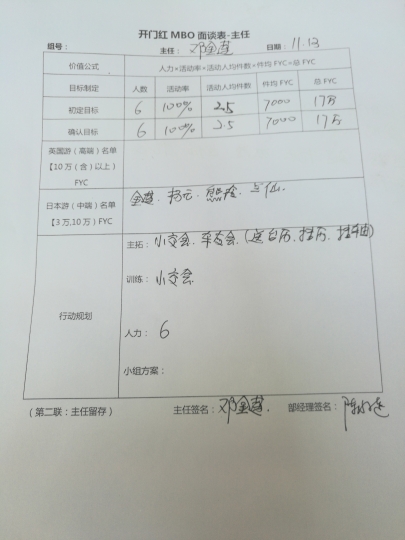 开门红 MBO 面谈表-主任
组号： 主任： 邓金莲 日期： 11.13
价值公式 人力×活动率×活动人均件数×件均 FYC＝总 FYC
目标制定 人数 活动率 活动人均件数 件均 FYC 总 FYC
初定目标 6 100% 2.5 7000 17万
确认目标 6 100% 2.5 7000 17万
英国游（高端）名单
【10 万（含）以上）
FYC
日本游（中端）名单
【3 万,10 万）FYC
金莲
主拓： 小交会、车友会、(送台历、挂历、挂
训练： 小交会
行动规划
人力： 6
小组方案：
（第二联：主任留存） 主任签名： 邓金莲. 部经理签名：